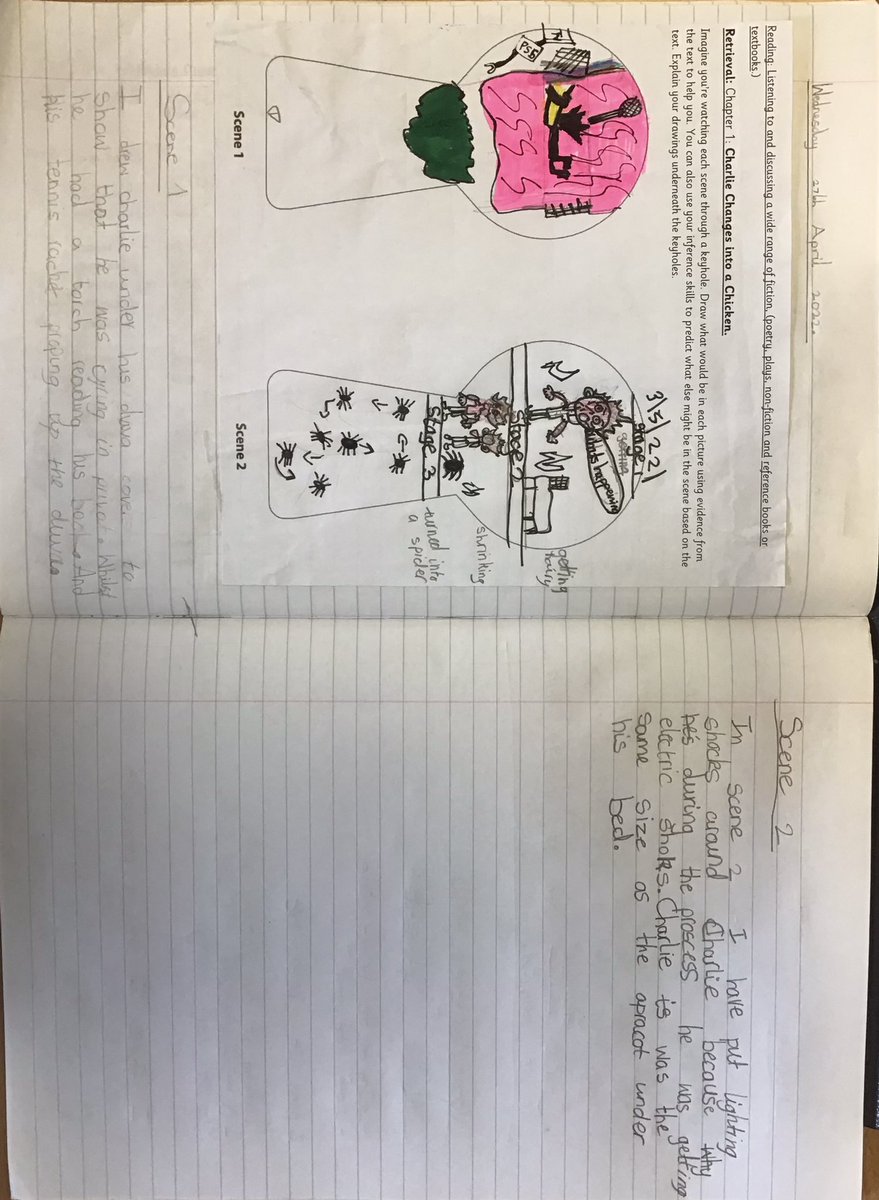 Wednesday 27th April 2022.
Reading: Listening to and discussing a wide range of fiction, (poetry, plays, non-fiction and reference books or
textbooks.)
Retrieval: Chapter 1: Charlie Changes into a Chicken.
Imagine you're watching each scene through a keyhole. Draw what would be in each picture using evidence from
the text to help you. You can also use your inference skills to predict what else might be in the scene based on the
text. Explain your drawings underneath the keyholes.
TV
PS5
3/5/22
Stage 1
Whats happening
getting
hairy
Stage 2
shrinking
Stage 3
turned into
a spider
Scene 1
Scene 2
Scene 1
I drew charlie under his duva cover to
show that he was crying in private. Whilst
he had a torch reading his book. And
his tennis racket proping up the duva.
Scene 2
In scene 2 I have put lighting
shocks around Charlie because why
he's during the proscess he was getting
electric shoks. Charlie is was the
same size as the apracot under
his bed.